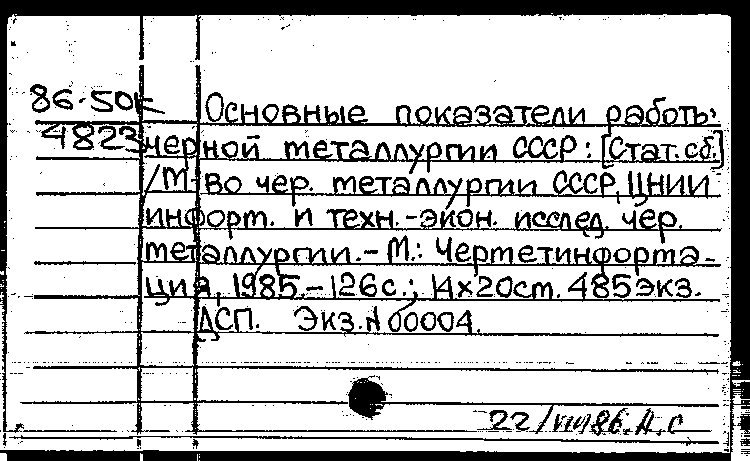 86-50к Основные показатели работы
4823 черной металлургии СССР: [Стат. сб.]
/М-во чер. металлургии СССР, ЦНИИ
информ. и техн.-экон. исслед. чер.
металлургии. – М.: Черметинформа-
ция, 1985. – 126 с.; 14х20 см. 485 экз.
ДСП. Экз. № 00004.
22/VIII 86. А. С